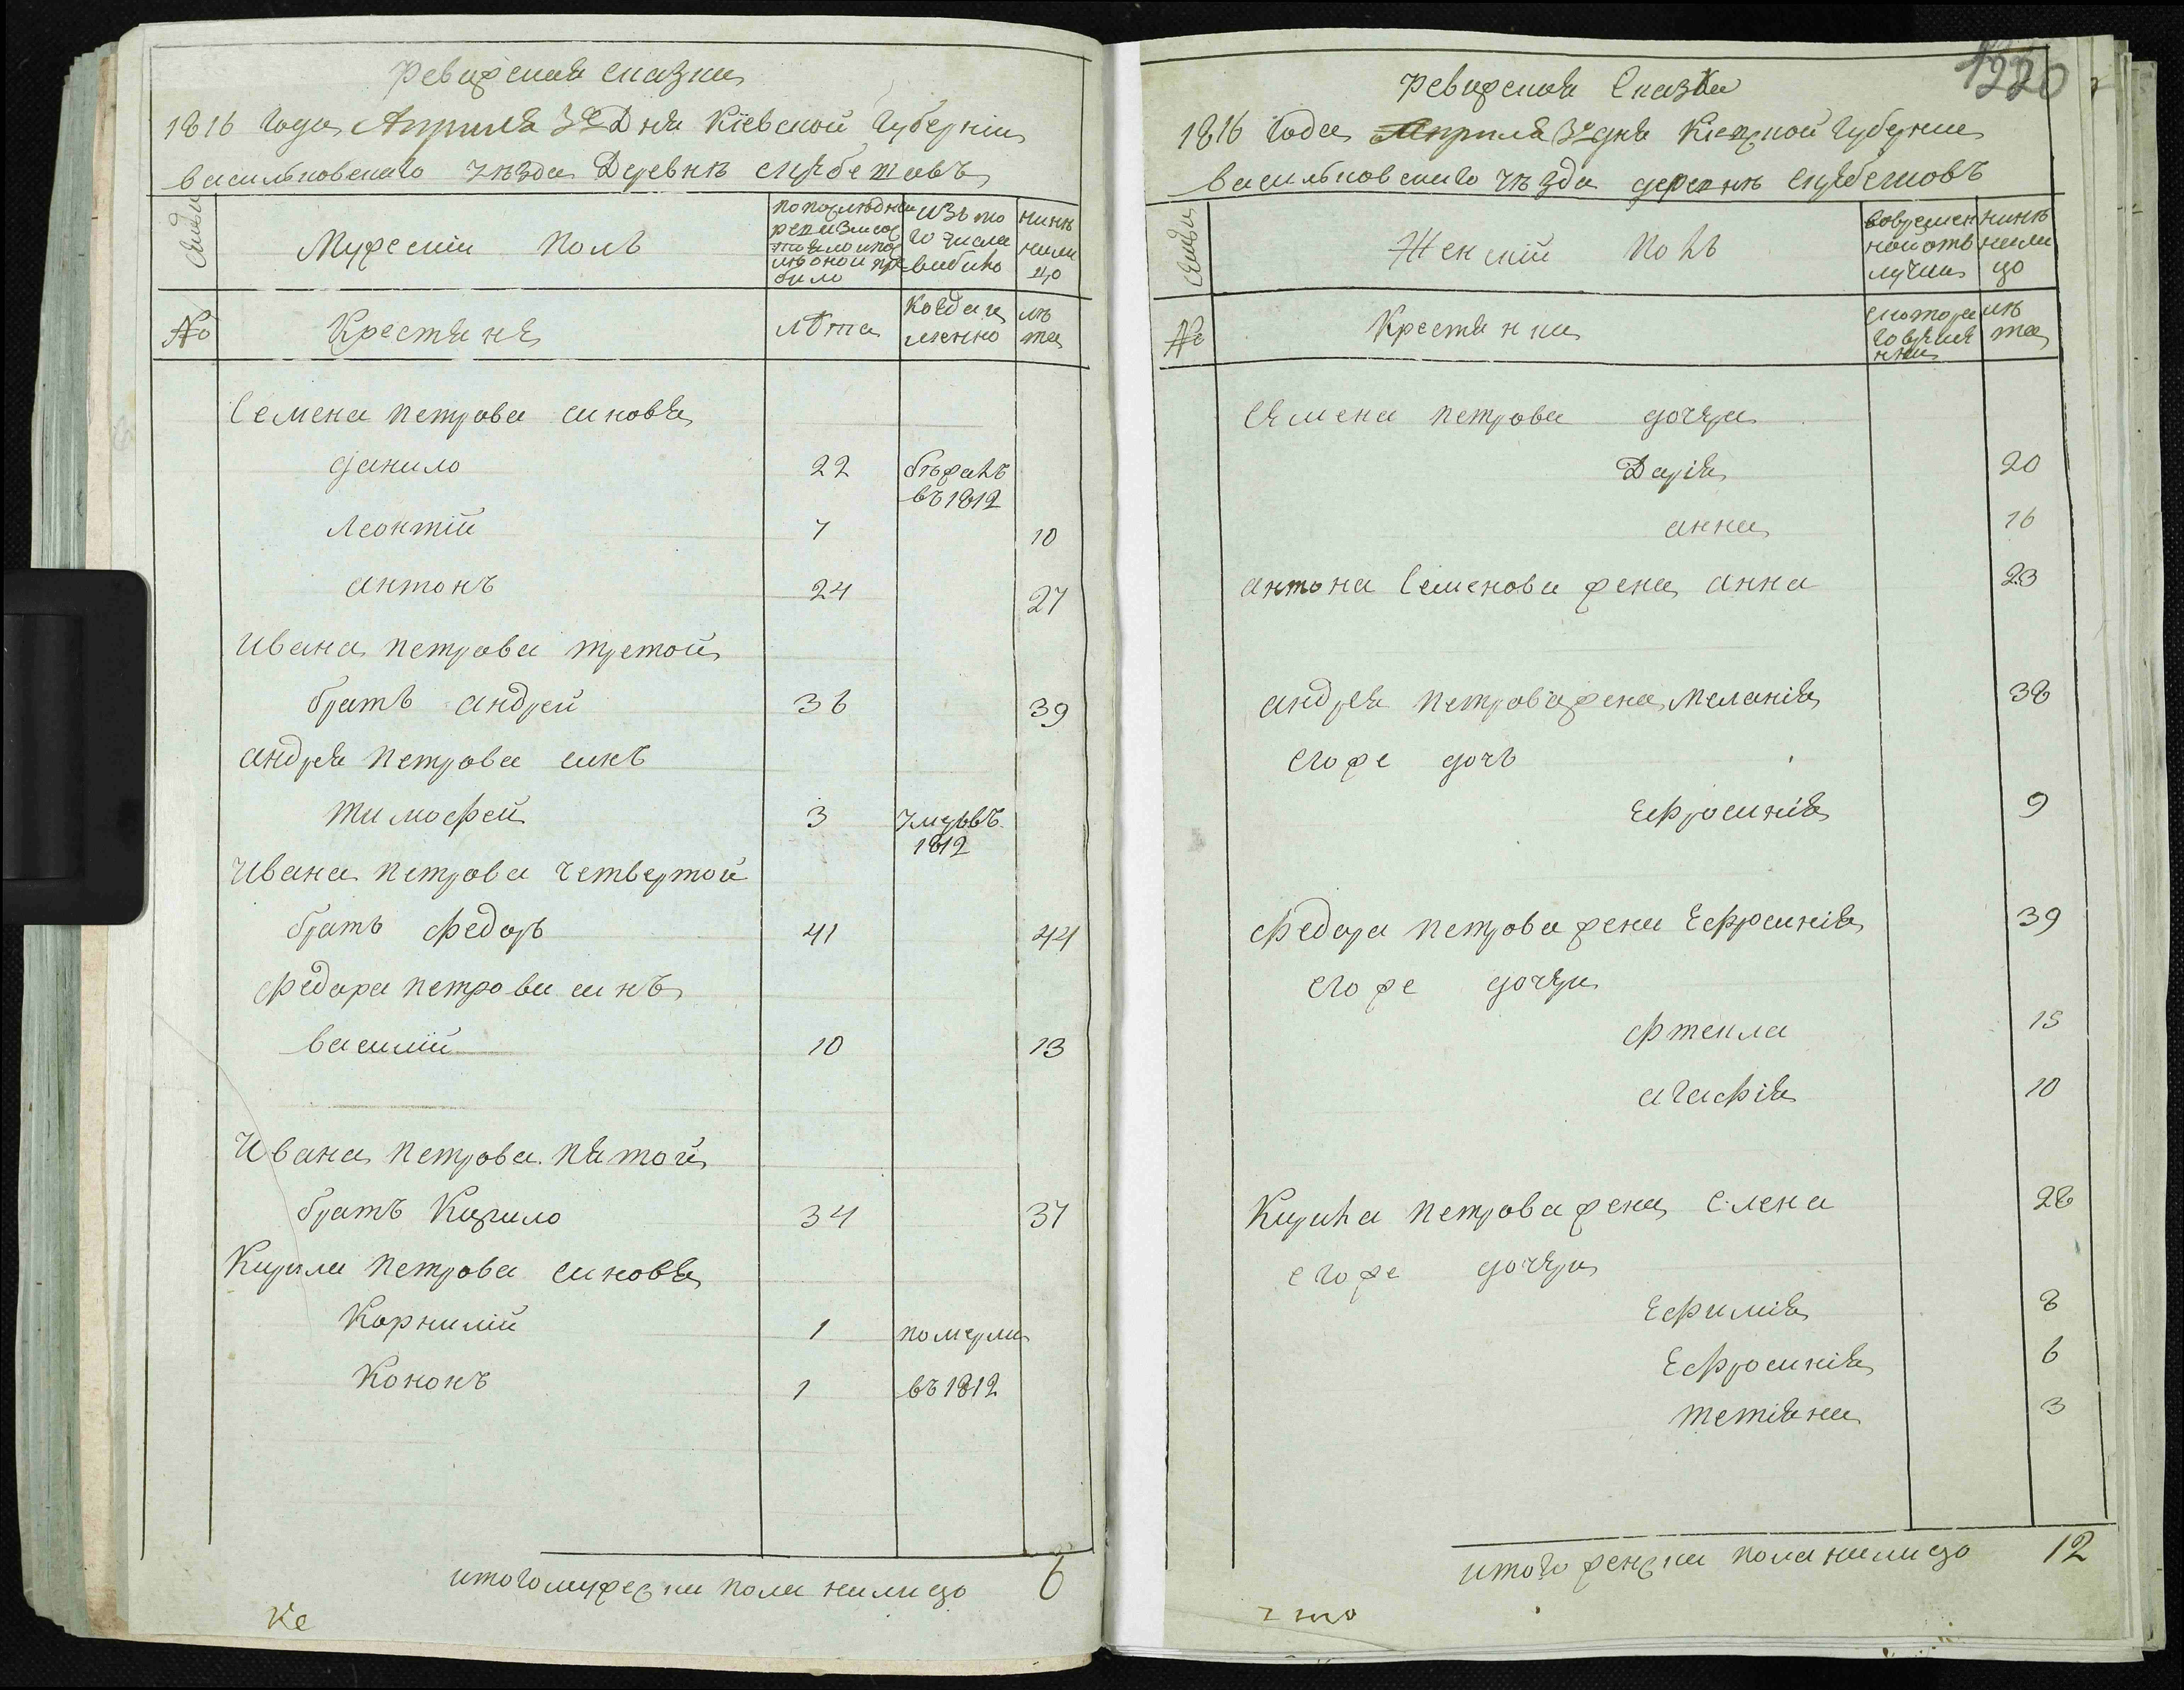 Ревизская сказка
1816 года Апреля 3го Дня Кіевской Губерніи
васильковскаго уѣзда Деревнѣ
Семьи
Мужескій полъ
по последней ревизіи состояло и после оной прибыло
изъ того числа выбыло
нинѣ налицо
№
Крестяне
лѣта
когда именно
лѣта
Семена петрова синовя
данило 22 бѣжалъ
въ 1812
леонтій 7 10
антонъ 24 27
Ивана петрова третой
братъ андрей 36 39
андрея петрова синъ
тимофей 3 умръ въ
1812
Ивана петрова четвертой
братъ федоръ 41 44
федора петрова синъ
василій 10 13
Ивана петрова пятой
братъ Кирило 34 37
Кирила петрова синовя
Корнилій 1 померли
Кононъ 1 въ 1812
итого мужеска пола налицо 6
Ке
1220
Ревизская Сказка
1816 года Апреля 3го дня Кіевской Губерніи
васильковскаго уѣзда деревнѣ
Семьи
Женскій полъ
во временной отлучки
нинѣ налицо
№
Крестянки
с которого времянни
лѣта
Семена петрова дочери
Дарія 20
анна 16
антона Семенова жена анна 23
андрея петрова жена меланія 38
его же дочъ
Ефросинія 9
федора петрова жена Ефросинія 39
его же дочери
фтекла 15
агафія 10
Кирила петрова жена Елена 28
его же дочери
Ефимія 8
Ефросинія 6
тетіяна 3
итого женска пола налицо 12
что